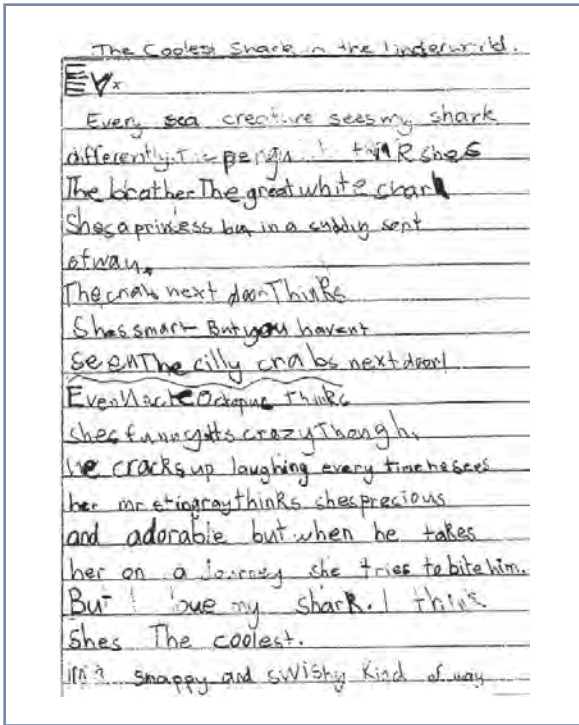 The Coolest Shark in the Underwrld.
Every sea creature sees my shark
differently. The pengu thinks shes
The brather The great white chark
Shes a priness but in a cuddly sort
of way.
The crab next door Thinks
Shes smart But you havent
seen The cilly crabs next door!
Even Octopus thinks
shes funny its crazy Though,
he cracks up laughing every time he sees
her mr stingray thinks shes precious
and adorable but when he takes
her on a Journey she tries to bite him.
But I love my shark. I think
shes The coolest.
in a snappy and swishy Kind of way